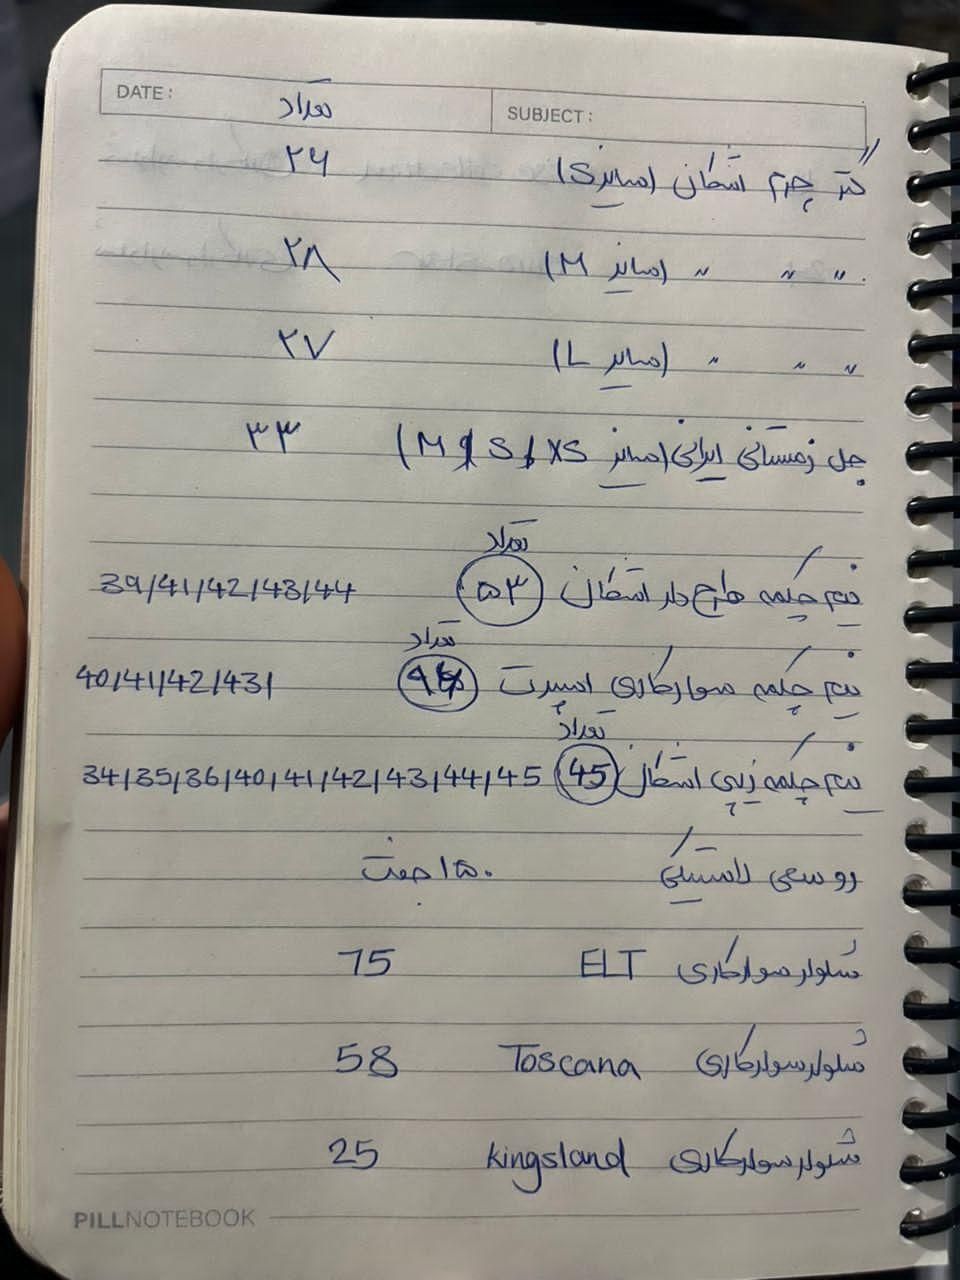 DATE: تعداد SUBJECT:
گتر چرم اشطال (سایز S) ۲۶
〃 〃 〃 (سایز M) ۲۸
〃 〃 〃 (سایز L) ۲۷
جل زمستانی ایرانی (سایز XS / S / M) ۳۳
تعداد
نیم چکمه طرح دار اشطال ۵۳ 39/41/42/43/44
تعداد
نیم چکمه سوارکاری اسپرت 40/41/42/43/
تعداد
نیم چکمه زیپی اشطال 45 34/35/36/40/41/42/43/44/45
رو سمی لاستیکی ۱۵۰ جفت
شلوار سوارکاری ELT 75
شلوار سوارکاری Toscana 58
شلوار سوارکاری kingsland 25
PILLNOTEBOOK